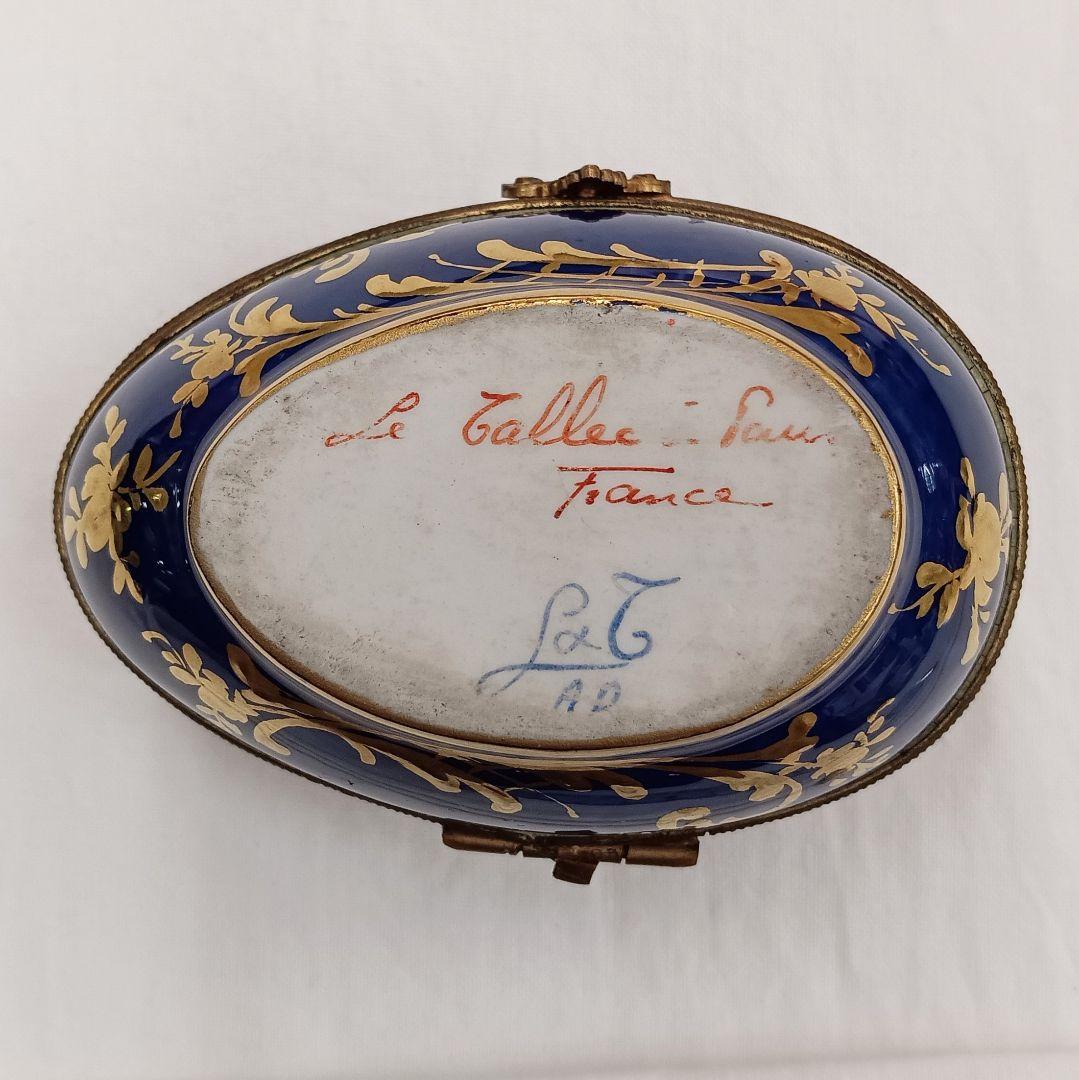 Le Tallec
France
L & T
AD